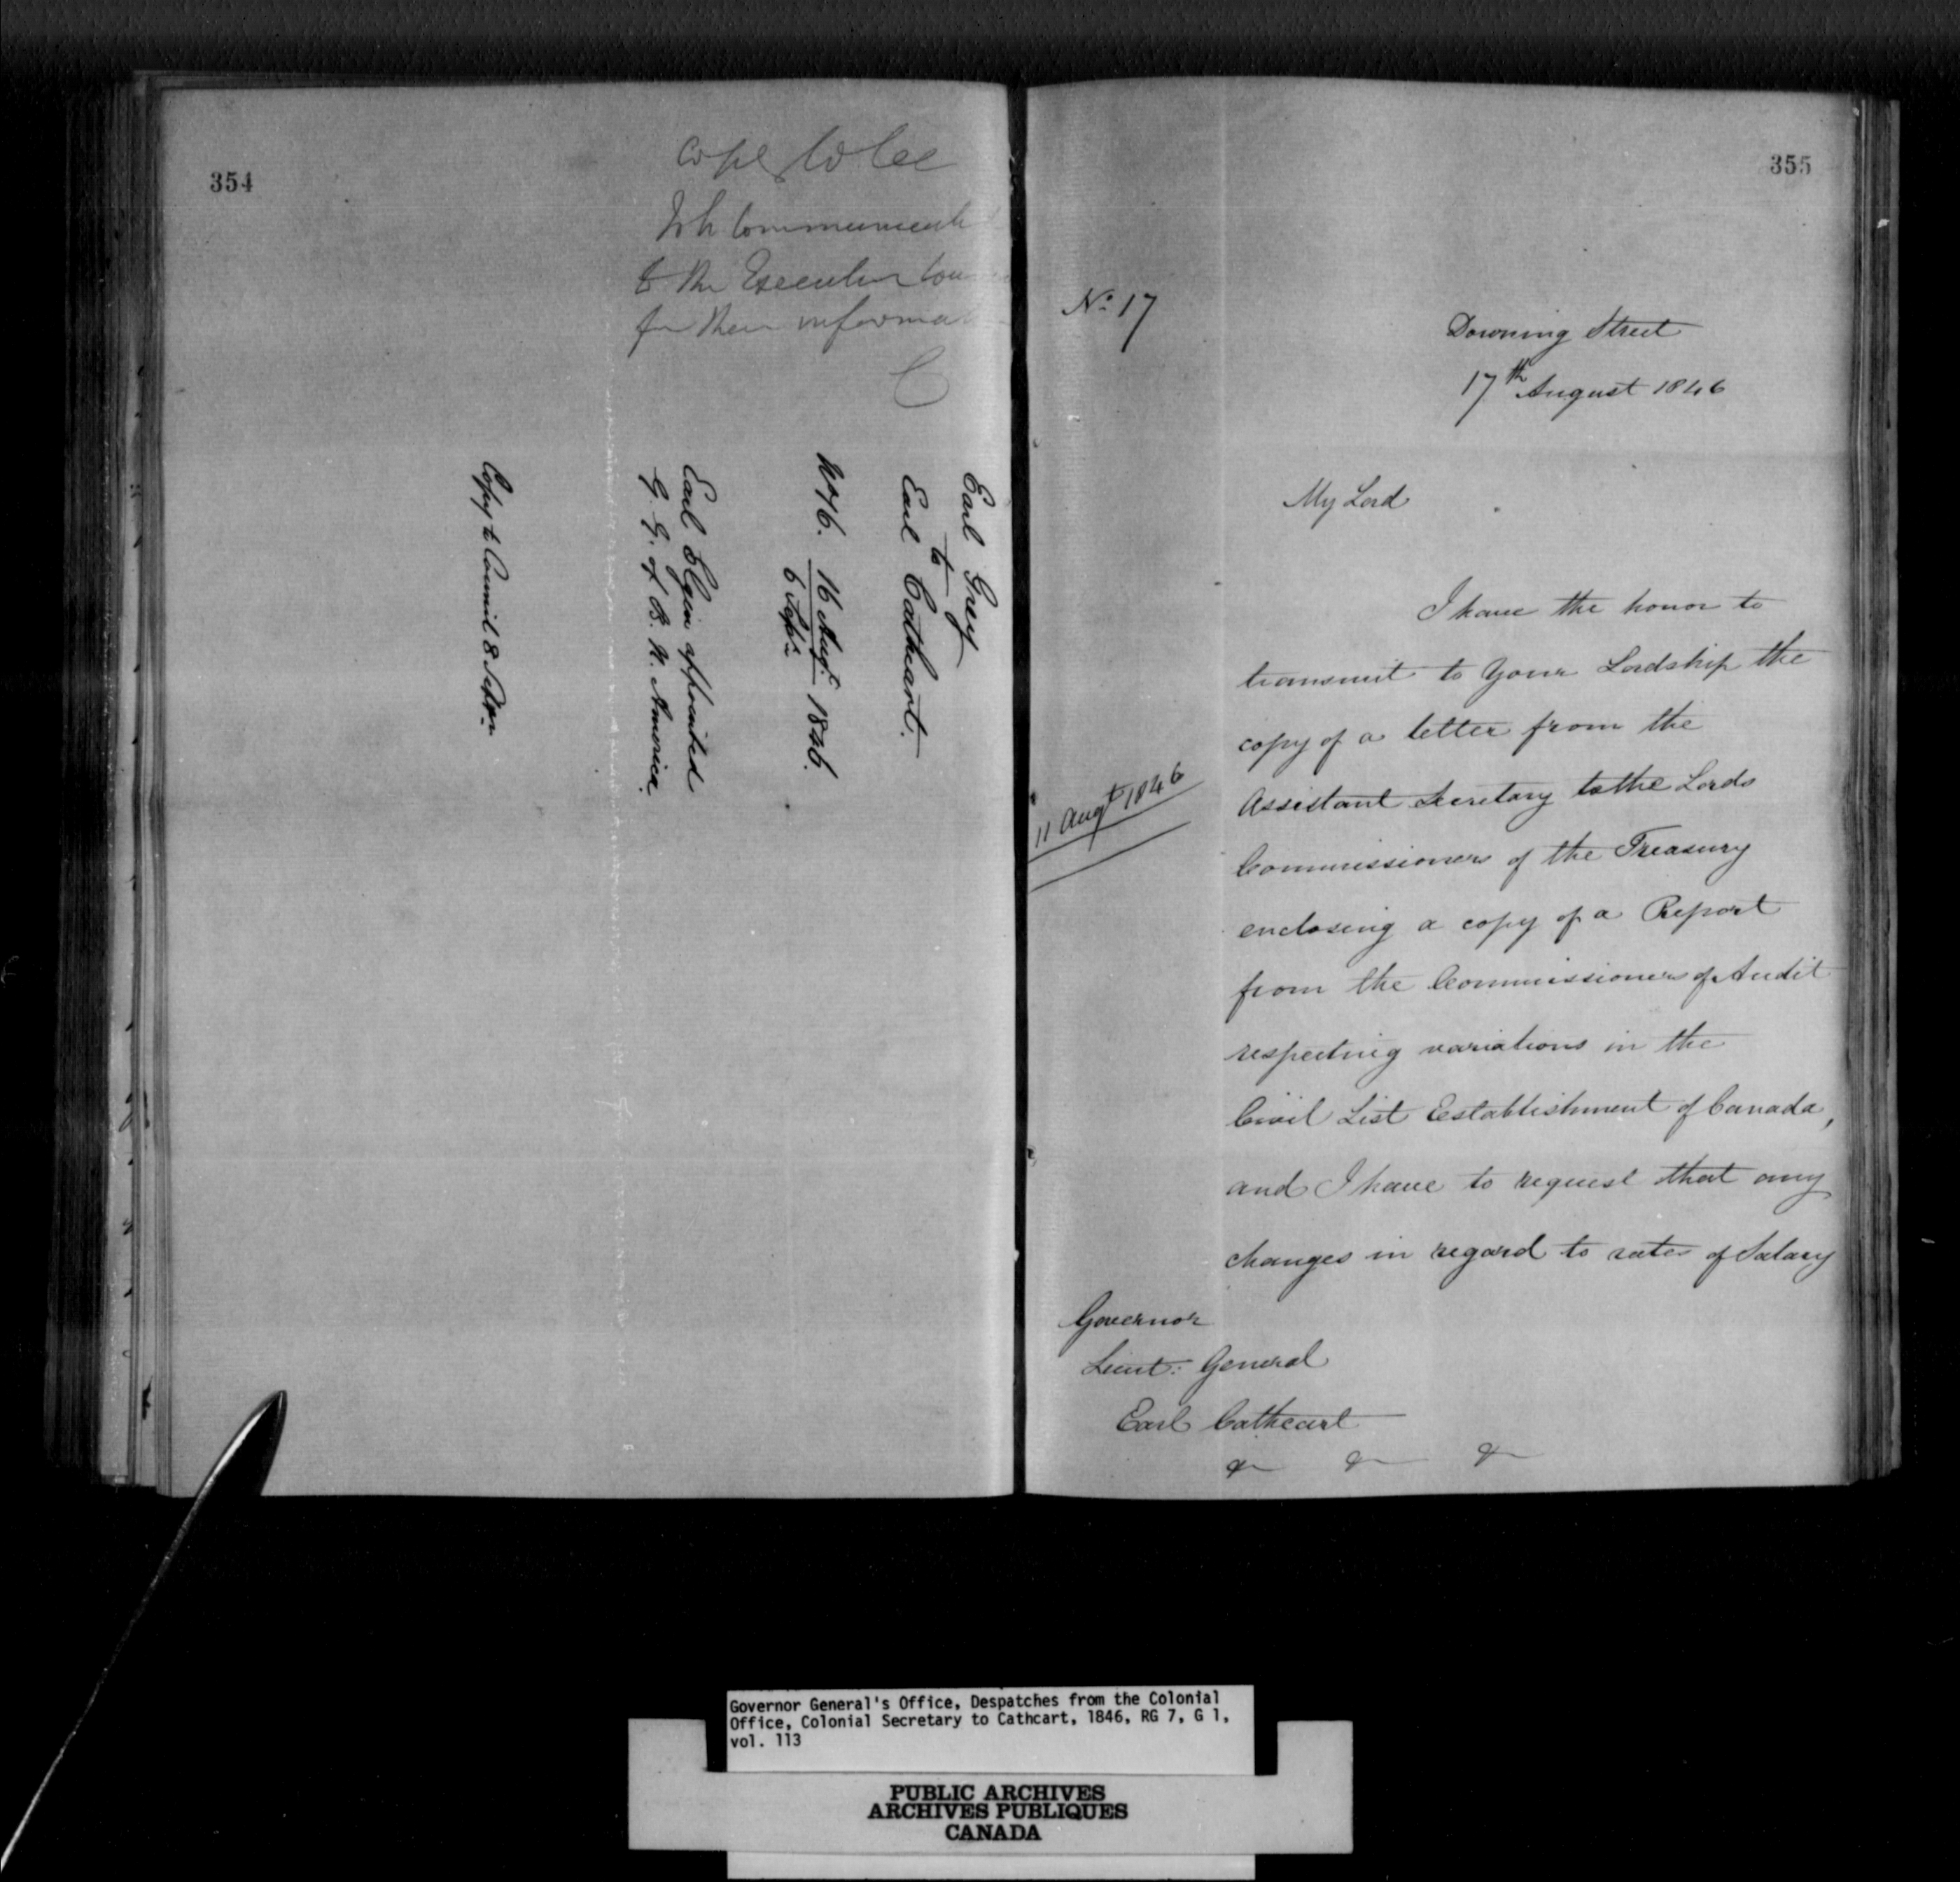 354
copy to be
communicate
to the Executive Cou
for their informat
C
Earl Grey
to
Earl Cathcart.
No 16. 16 Augt. 1846.
6 Paps.
Earl Elgin appointed
G. G. of B. N. America.
Copy to Council 8 Septr.
355
No. 17
Downing Street
17th August 1846
My Lord
I have the honor to
transmit to Your Lordship the
copy of a letter from the
11 Augt 1846
Assistant Secretary to the Lords
Commissioners of the Treasury
enclosing a copy of a Report
from the Commissioners of Audit
respecting variations in the
Civil List Establishment of Canada,
and I have to request that any
changes in regard to rates of Salary
Governor
Lieut: General
Earl Cathcart
& & &
Governor General's Office, Despatches from the Colonial
Office, Colonial Secretary to Cathcart, 1846, RG 7, G 1,
vol. 113
PUBLIC ARCHIVES
ARCHIVES PUBLIQUES
CANADA